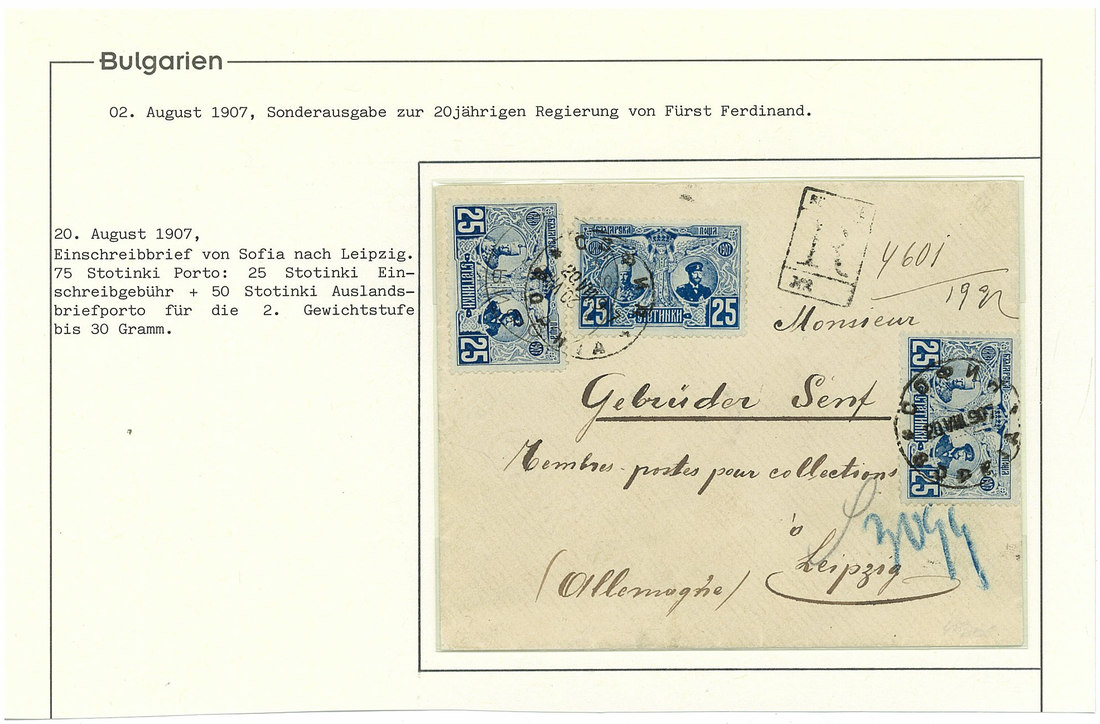 Bulgarien
02. August 1907, Sonderausgabe zur 20jährigen Regierung von Fürst Ferdinand.
20. August 1907,
Einschreibbrief von Sofia nach Leipzig.
75 Stotinki Porto: 25 Stotinki Ein-
schreibgebühr + 50 Stotinki Auslands-
briefporto für die 2. Gewichtstufe
bis 30 Gramm.
25
25
25 СТОТИНКИ 25
R
4601
Monsieur
Gebrüder Senf
Timbres-postes pour collections
à
Leipzig
(Allemagne)
25
25